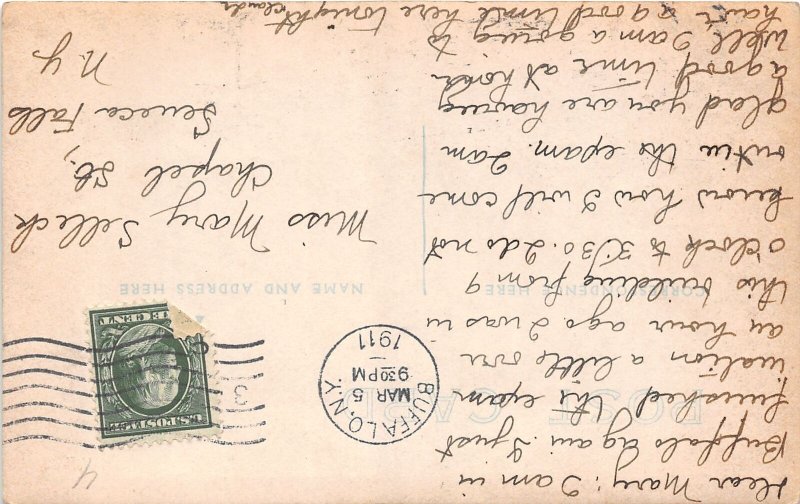 POST CARD
CORRESPONDENCE HERE
NAME AND ADDRESS HERE
Dear Mary: I am in
Buffalo again. I just
finished the exam
ination a little over
an hour ago. I was in
this building from 9
o'clock to 3:30. I do not
know how I will come
out in the exam. I am
glad you are having
a good time at home.
Well I am a going to
have a good time here tonight
Claude
BUFFALO, N.Y.
MAR 5
930 PM
1911
3
U.S. POSTAGE
Miss Mary Selleck
Chapel St.,
Seneca Falls
N.Y.
4